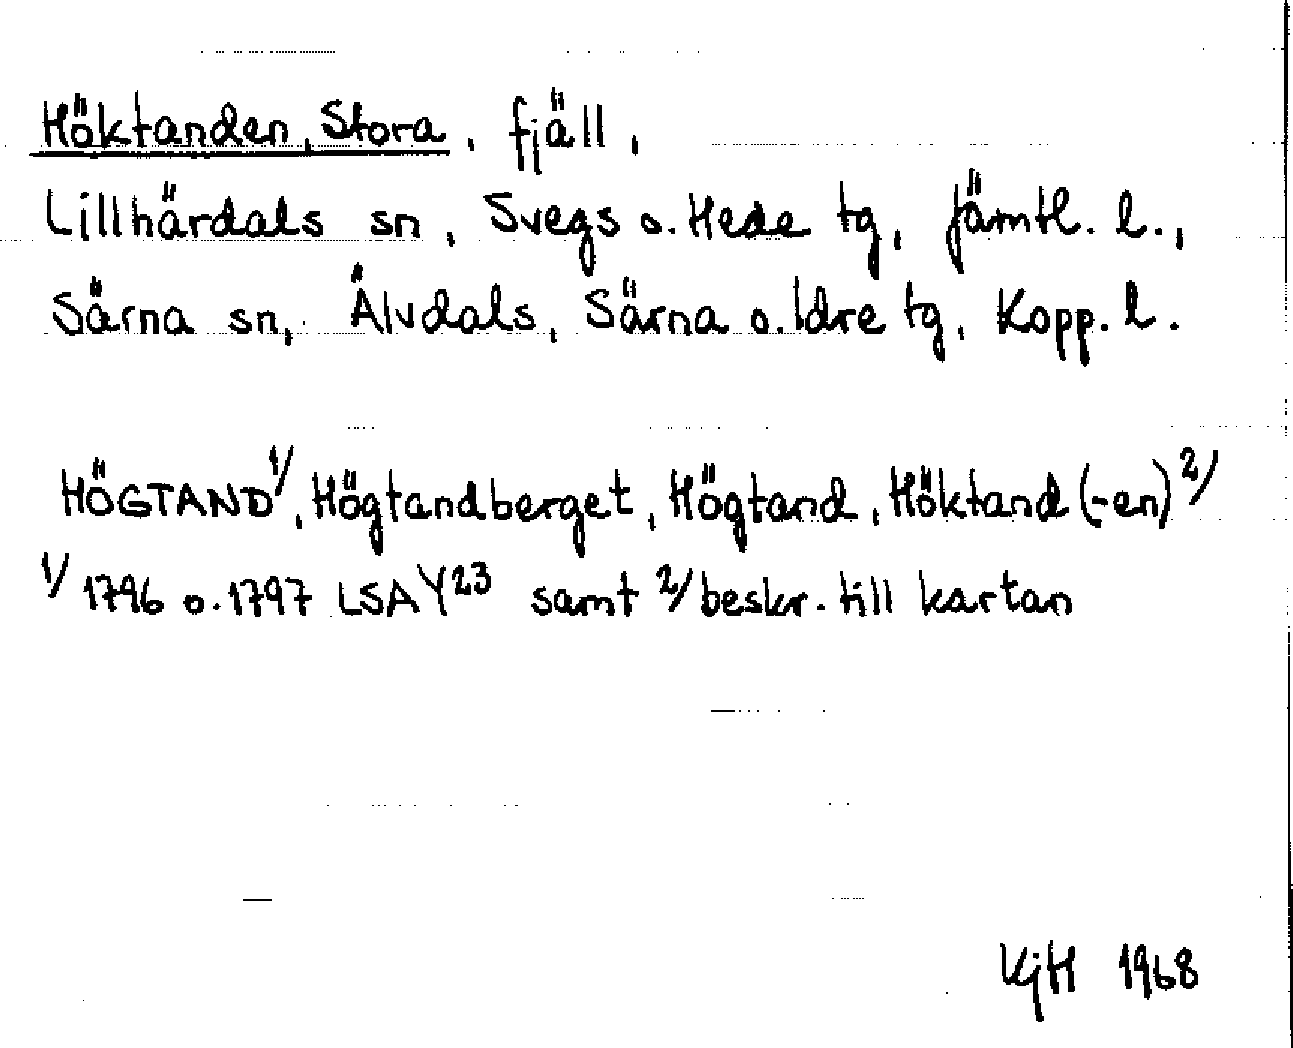 Höktanden, Stora, fjäll,
Lillhärdals sn, Svegs o. Hede tg, Jämtl. l.,
Särna sn, Älvdals, Särna o. Idre tg, Kopp. l.
HÖGTAND 1/, Högtandberget, Högtand, Höktand (-en) 2/
1/ 1796 o. 1797 LSA Y23 samt 2/ beskr. till kartan
KjH 1968